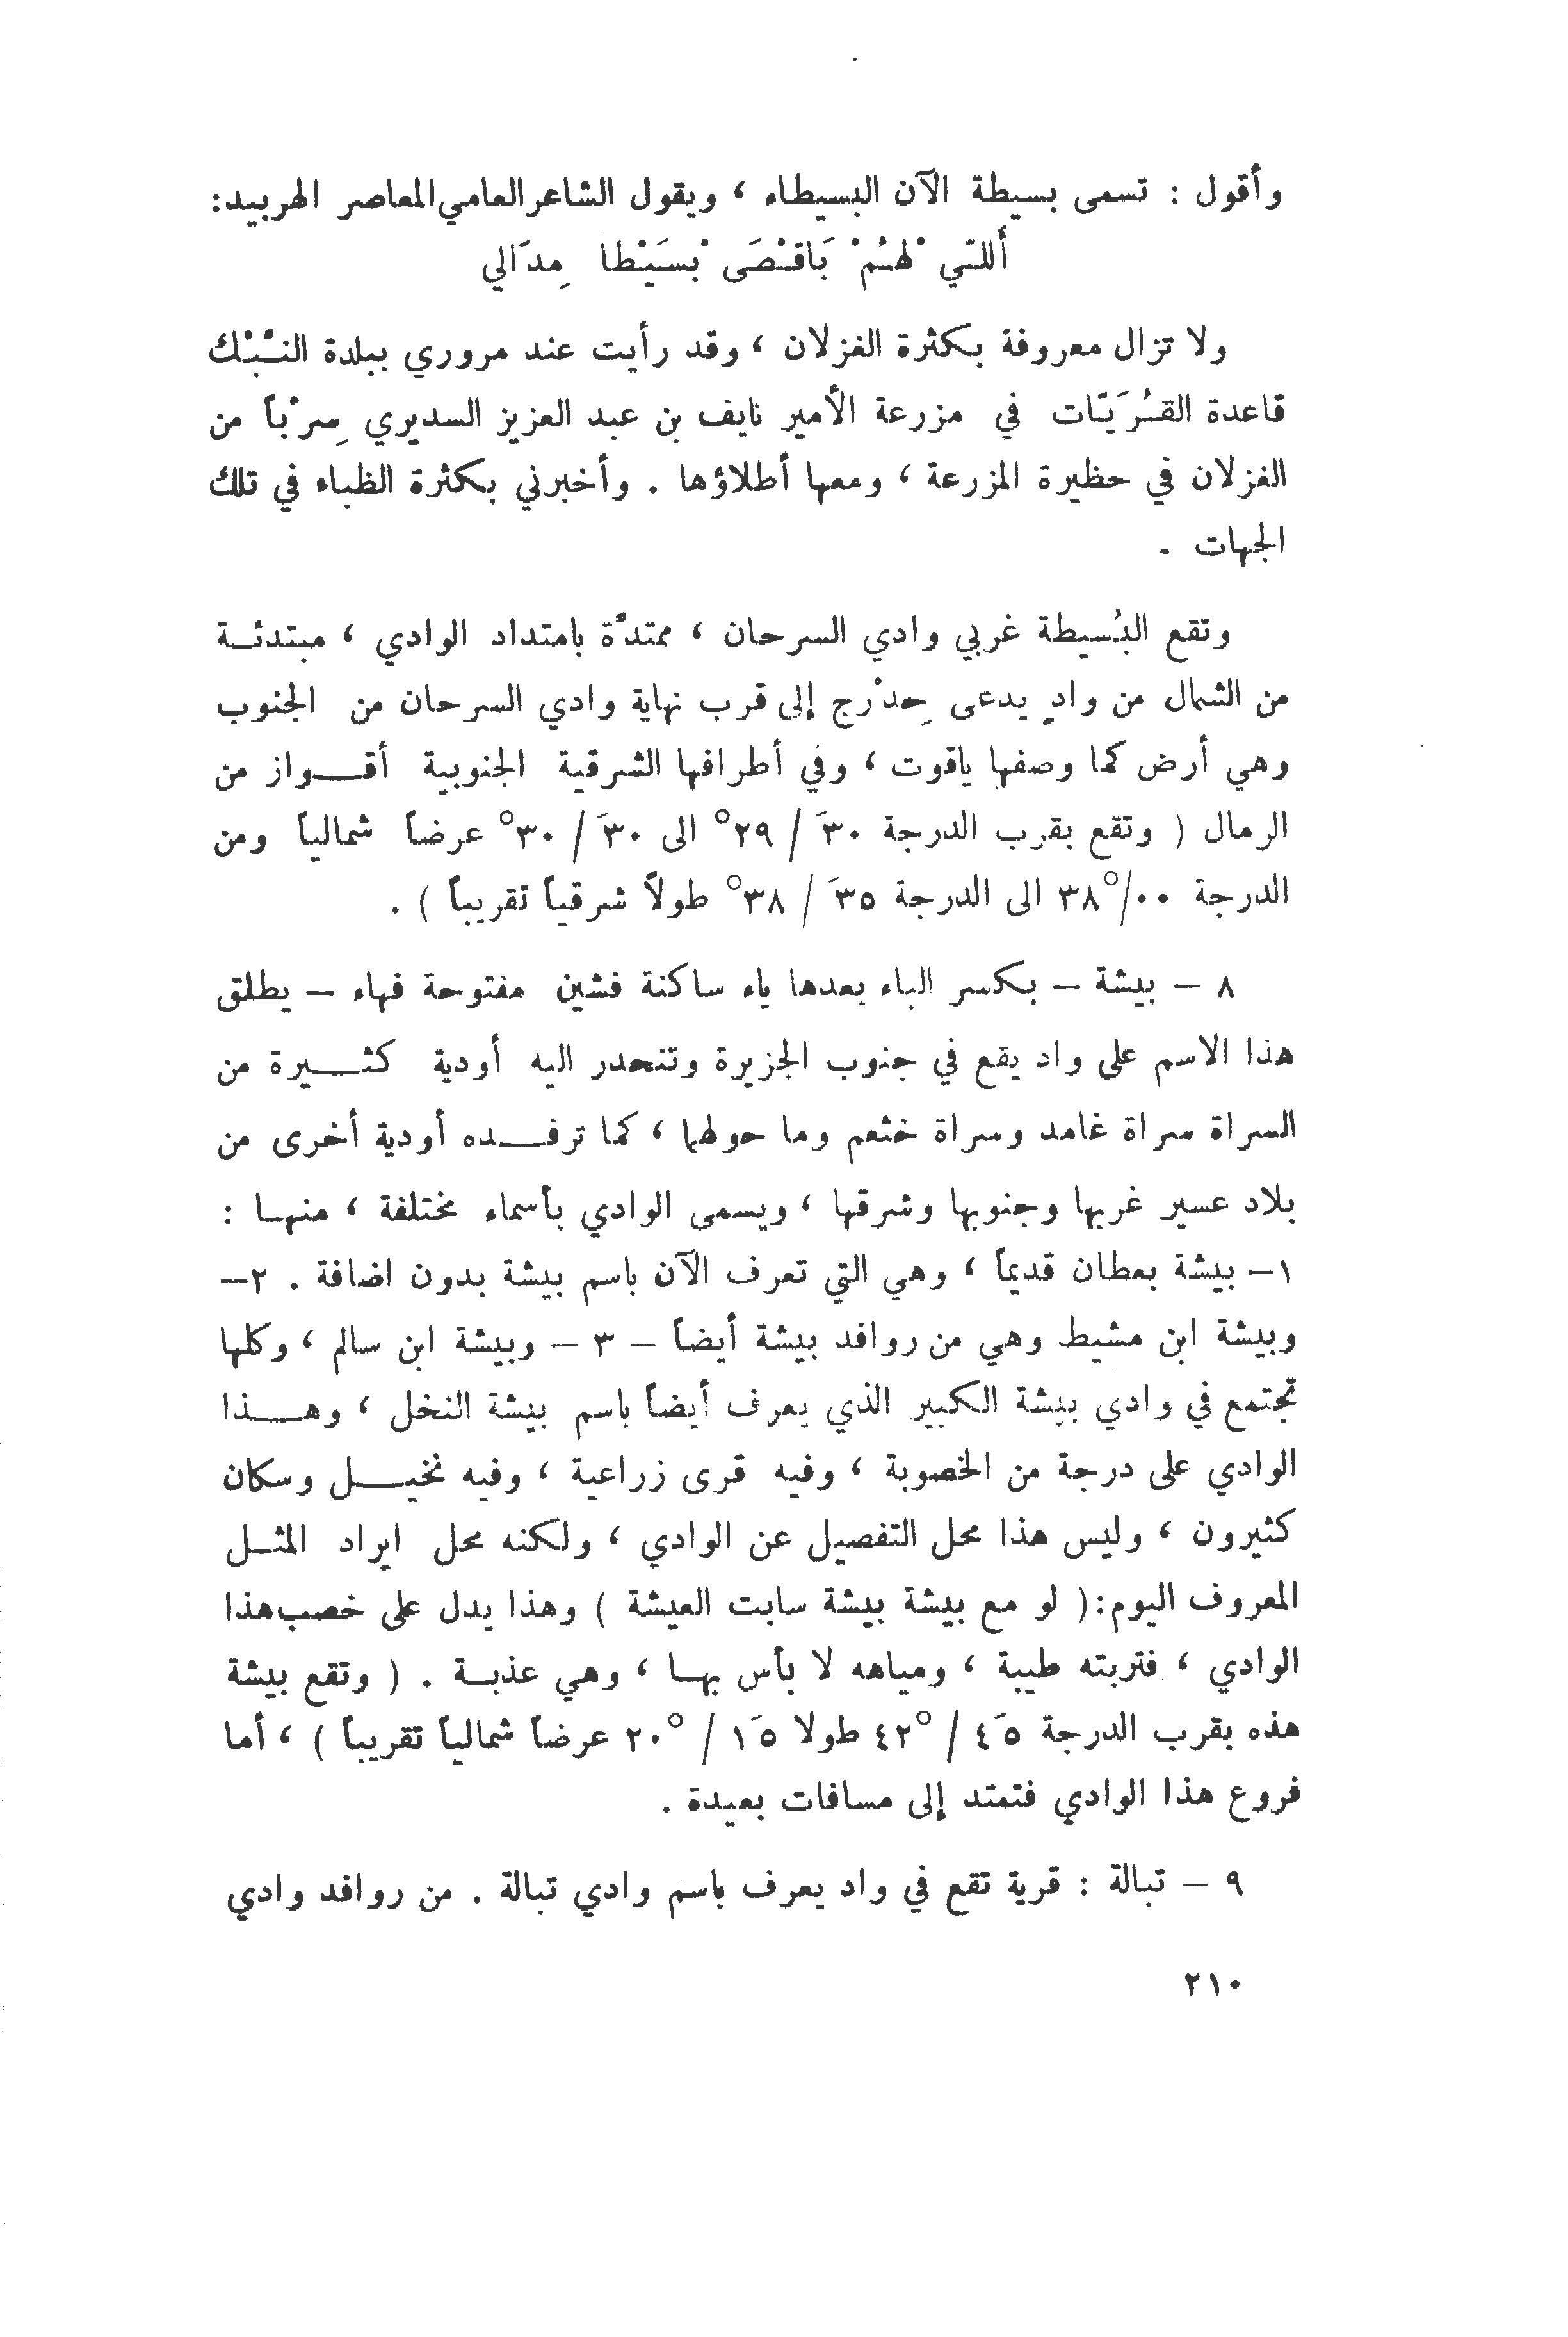 وأقول : تسمى بسيطة الآن البسيطاء ، ويقول الشاعر العامي المعاصر الهربيد:
أَللتّي ْلهُمْ بَاقْصَى ْبسَيْطا مِدَالي
ولا تزال معروفة بكثرة الغزلان ، وقد رأيت عند مروري ببلدة النَّبْك
قاعدة القُرَيّات في مزرعة الأمير نايف بن عبد العزيز السديري سِرْباً من
الغزلان في حظيرة المزرعة ، ومعها أطلاؤها . وأخبرني بكثرة الظباء في تلك
الجهات .
وتقع البُسيطة غربي وادي السرحان ، ممتدَّة بامتداد الوادي ، مبتدئة
من الشمال من وادٍ يدعى حِدْرج إلى قرب نهاية وادي السرحان من الجنوب
وهي أرض كما وصفها ياقوت ، وفي أطرافها الشرقية الجنوبية أقواز من
الرمال ( وتقع بقرب الدرجة ٣٠َ / ٢٩° الى ٣٠َ / ٣٠° عرضاً شمالياً ومن
الدرجة ٠٠/°٣٨ الى الدرجة ٣٥َ / ٣٨° طولاً شرقياً تقريباً ) .
٨ – بيشة – بكسر الباء بعدها ياء ساكنة فشين مفتوحة فهاء – يطلق
هذا الاسم على واد يقع في جنوب الجزيرة وتنحدر اليه أودية كثيرة من
السراة سراة غامد وسراة خثعم وما حولهما ، كما ترفده أودية أخرى من
بلاد عسير غربها وجنوبها وشرقها ، ويسمى الوادي بأسماء مختلفة ، منها :
١– بيشة بعطان قديماً ، وهي التي تعرف الآن باسم بيشة بدون اضافة . ٢–
وبيشة ابن مشيط وهي من روافد بيشة أيضاً – ٣ – وبيشة ابن سالم ، وكلها
تجتمع في وادي بيشة الكبير الذي يعرف أيضاً باسم بيشة النخل ، وهذا
الوادي على درجة من الخصوبة ، وفيه قرى زراعية ، وفيه نخيل وسكان
كثيرون ، وليس هذا محل التفصيل عن الوادي ، ولكنه محل ايراد المثل
المعروف اليوم:( لو مع بيشة بيشة سابت العيشة ) وهذا يدل على خصب هذا
الوادي ، فتربته طيبة ، ومياهه لا بأس بها ، وهي عذبة . ( وتقع بيشة
هذه بقرب الدرجة ٤٥َ / °٤٢ طولا ١٥َ / °٢٠ عرضاً شمالياً تقريباً ) ، أما
فروع هذا الوادي فتمتد إلى مسافات بعيدة .
٩ – تبالة : قرية تقع في واد يعرف باسم وادي تبالة . من روافد وادي
٢١٠